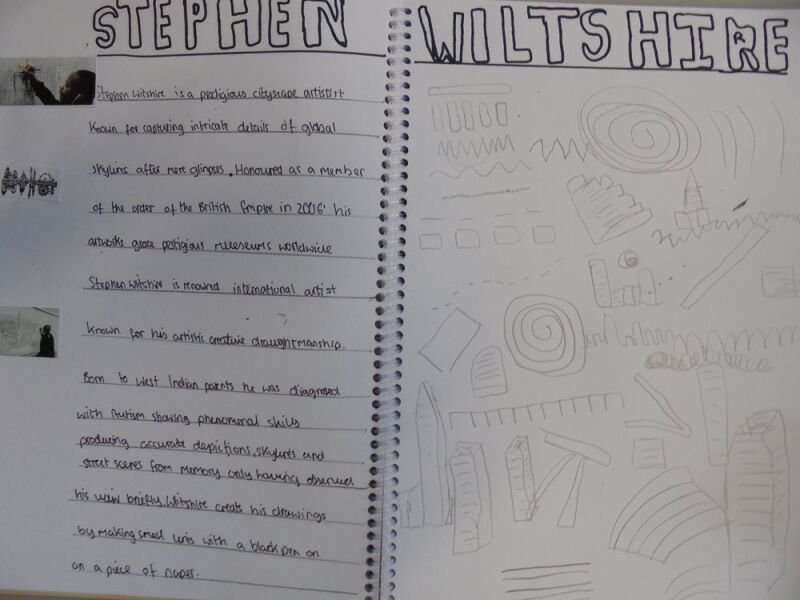 STEPHEN WILTSHIRE
Stephen Wiltshire is a prodigious cityscape artistist
Known for capturing intricate details of global
skylines after mere glimpses. Honoured as a member
of the order of the British Empire in 2006' his
artworks grace pestigious museums worldwide
Stephen Wiltshire is renowned international artist
Known for his artistic creative draughtmanship.
Born to West Indian parents he was diagnosed
with Autism showing phenomenal skills
producing accurate depictions, skylines and
street scenes from memory only having observed
his view briefly. Wiltshire creats his drawings
by making small with a black pen on
on a piece of paper.